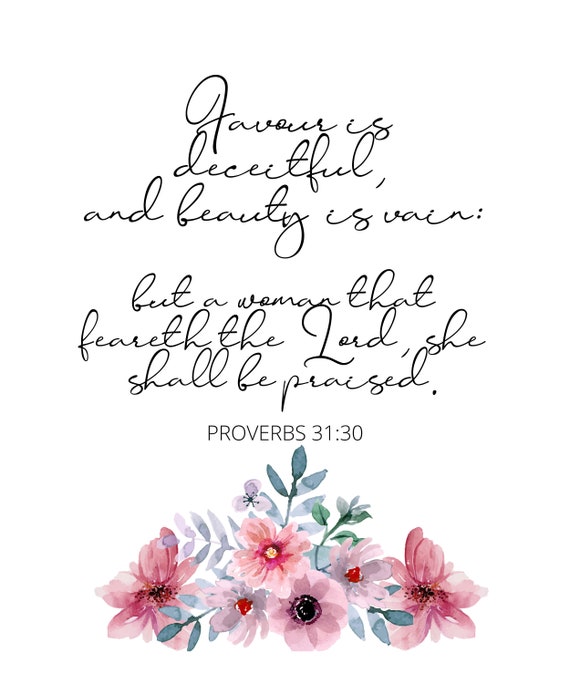 Favour is
deceitful,
and beauty is vain:
but a woman that
feareth the Lord, she
shall be praised.
PROVERBS 31:30